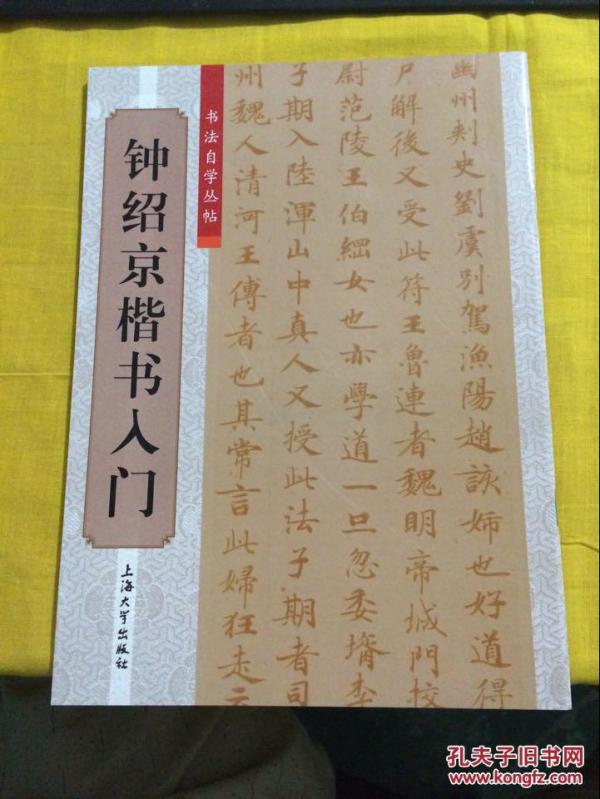 钟绍京楷书入门
上海大学出版社
书法自学丛帖
幽州刾史劉虞別駕漁陽趙詼姉也好道得
尸解後又受此符王魯連者魏明帝城門挍
尉范陵王伯綱女也亦學道一旦忽委壻李
子期入陸渾山中真人又授此法子期者司
州魏人清河王傅者也其常言此婦狂走云
孔夫子旧书网
www.kongfz.com